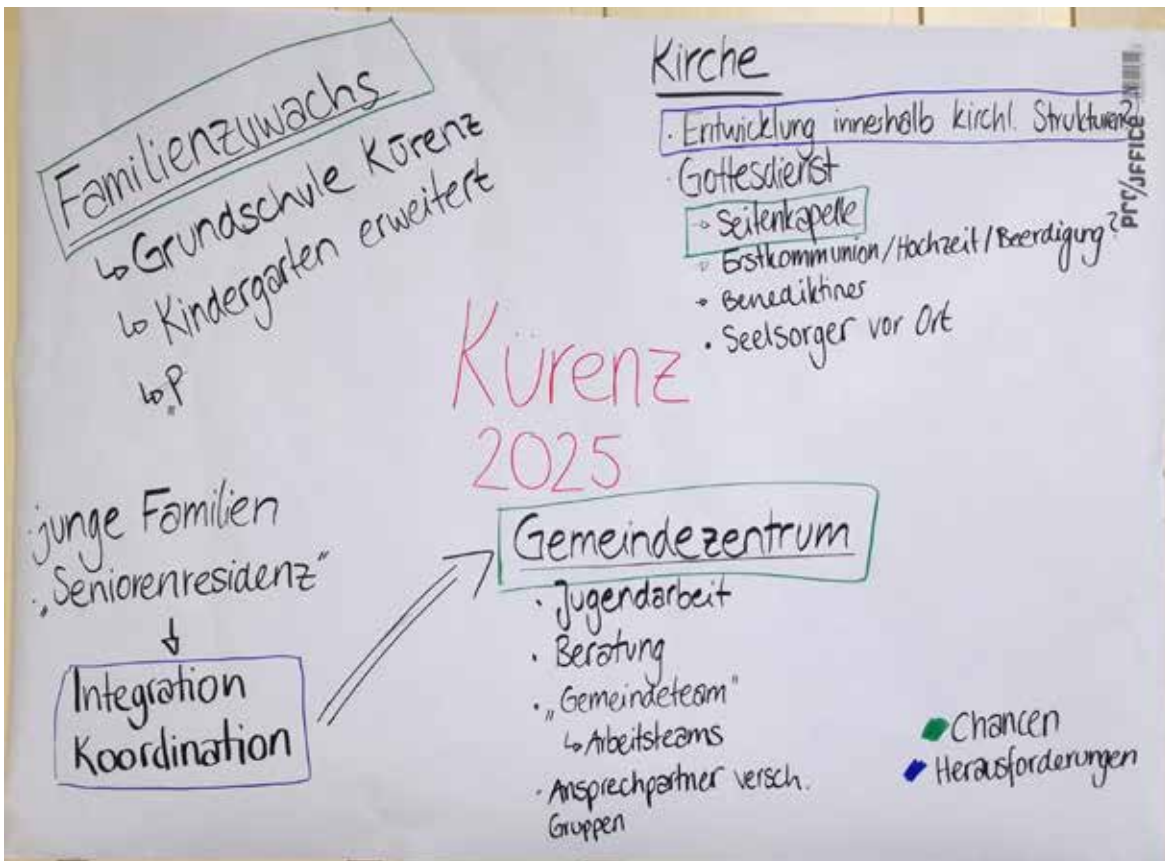 Familienzuwachs
↳ Grundschule Kürenz
↳ Kindergarten erweitert
↳ P
Kirche
· Entwicklung inneshalb kirchl. Strukturen?
· Gottesdienst
→ Seitenkapelle
→ Erstkommunion/Hochzeit/Beerdigung?
→ Benediktiner
· Seelsorger vor Ort
Kürenz
2025
· junge Familien
· „Seniorenresidenz"
↓
Integration
Koordination
Gemeindezentrum
· Jugendarbeit
· Beratung
· „Gemeindeteam"
↳ Arbeitsteams
· Ansprechpartner versch.
Gruppen
Chancen
Herausforderungen